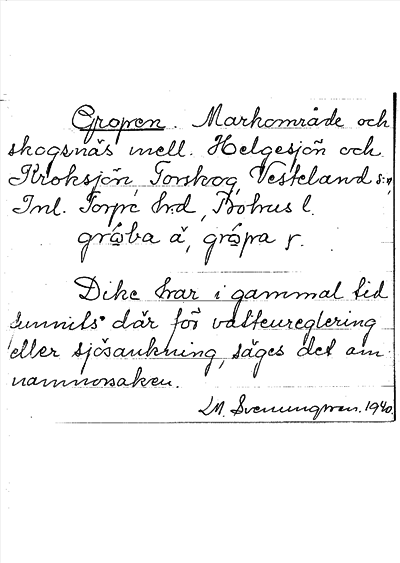 Gropen. Markområde och
skogsnäs mell. Helgesjön och
Kroksjön, Torskog, Vesteland s:n,
Inl. Torpe hrd, Bohus l.
gròba å, gròpa f.
Dike har i gammal tid
funnits där för vattenreglering
eller sjösänkning, säges det om
namnorsaken.
LM. Svenungsson. 1940.